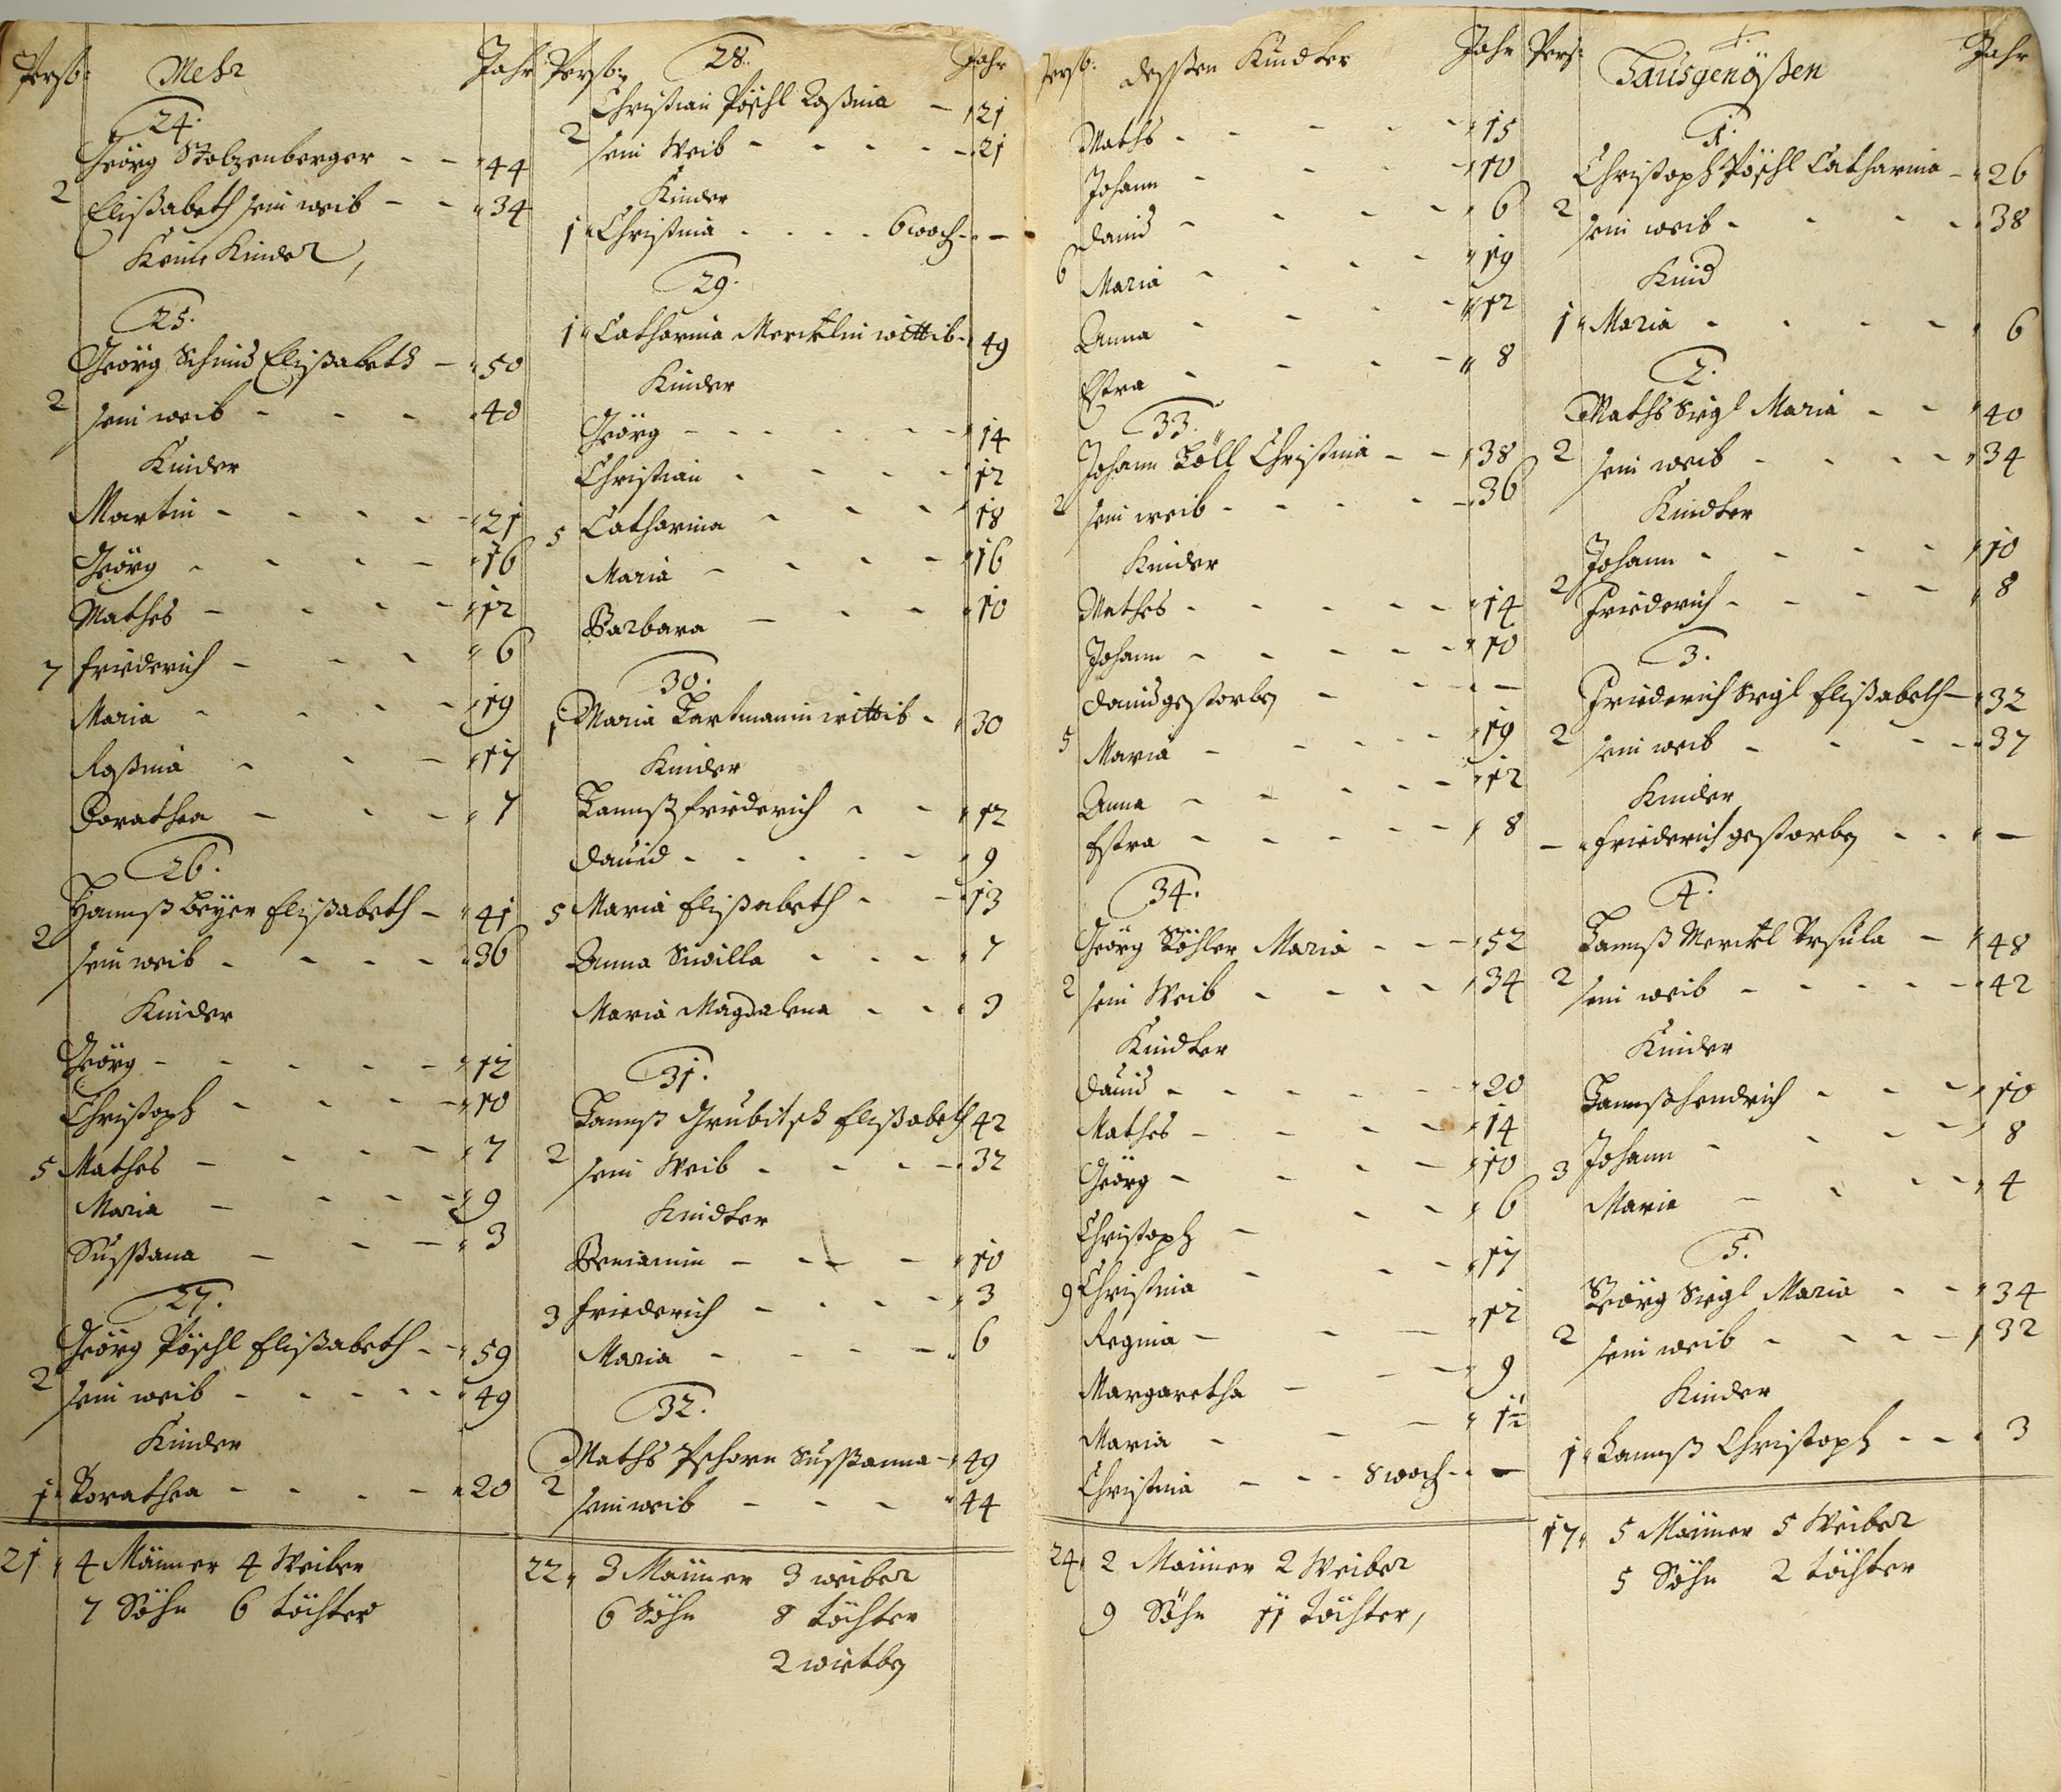 Perso: Mehr Jahr
24.
Geörg Stolzenberger - - 44
2 Elisabeth sein weib - - 34
Keine Kinder,
25.
Geörg Schmid Elisabeth - 50
2 sein weib - - - 40
Kinder
Martin - - - - 21
Geörg - - - - 16
Mathes - - - - 12
7 friederich - - - 6
Maria - - - - 19
Rosina - - - 17
Dorathea - - - 7
26.
Hannß Beÿer Elisabeth - 41
2 sein weib - - - - 36
Kinder
Geörg - - - - - 12
Christoph - - - - 10
5 Mathes - - - - 7
Maria - - - - 9
Susßana - - - 3
27.
Geörg Pöschl Elisabeth - - 59
2 sein weib - - - - - 49
Kinder
1 Dorathea - - - - 20
21 4 Männer 4 Weiber
7 Söhn 6 töchter
Perso: 28. Jahr
Christian Pöschl Rosina - 21
2 sein Weib - - - - - 21
Kinder
1 Christina - - - - 6 woch - -
29.
1 Catharina Mercklin wittib - 49
Kinder
Geörg - - - - - - 14
Christian - - - - 12
5 Catharina - - - 18
Maria - - - - 16
Barbara - - - 10
30.
1 Maria Hartmanin wittib - 30
Kinder
Hannß friederich - - 12
David - - - - - 9
5 Maria Elisabeth - - 13
Anna Siwilla - - - 7
Maria Magdalena - - 3
31.
Hannß Grubitsch Elisabeth 42
2 sein Weib - - - - 32
Kindter
Beniamin - - - - 10
3 friederich - - - - 3
Maria - - - - - 6
32.
Maths Pschorn Susßanna - 49
2 sein weib - - - 44
22 3 Männer 3 weiber
6 Söhn 8 töchter
2 wietby
Perso: dessten Kindter Jahr
Maths - - - - - 15
Johann - - - - 10
David - - - - 6
6 Maria - - - - 19
Anna - - - - 12
Estra - - - - 8
33.
Johann Höll Christina - - 38
2 sein weib - - - - - 36
Kinder
Mathes - - - - - 14
Johann - - - - - 10
David gestorbe - - - -
5 Maria - - - - - 19
Anna - - - - - 12
Estra - - - - - 8
34.
Geörg Köhler Maria - - - 52
2 sein Weib - - - - 34
Kindter
David - - - - - 20
Mathes - - - - 14
Geörg - - - - 10
Christoph - - - 6
9 Christina - - - 17
Regina - - - 12
Margaretha - - - 9
Maria - - - 1½
Christina - - - 8 woch - -
24 2 Männer 2 Weiber
9 Söhn 11 töchter,
Pers: Hausgenößen Jahr
1.
Christoph Pöschl Catharina - 26
2 sein weib - - - - 38
Kind
1 Maria - - - - 6
2.
Maths Sigl Maria - - 40
2 sein weib - - - - 34
Kindter
Johann - - - - 10
2 Friederich - - - - 8
3.
Friederich Sigl Elisabeth - 32
2 sein weib - - - - 37
Kinder
- friederich gestorbe - - - -
4.
Hannß Merckl Ursula - 48
2 sein weib - - - - - 42
Kinder
Hannß hendrich - - - 10
3 Johann - - - - 8
Maria - - - - 4
5.
Geörg Sigl Maria - - 34
2 sein weib - - - - 32
Kinder
1 Hannß Christoph - - - 3
17 5 Männer 5 Weiber
5 Söhn 2 töchter